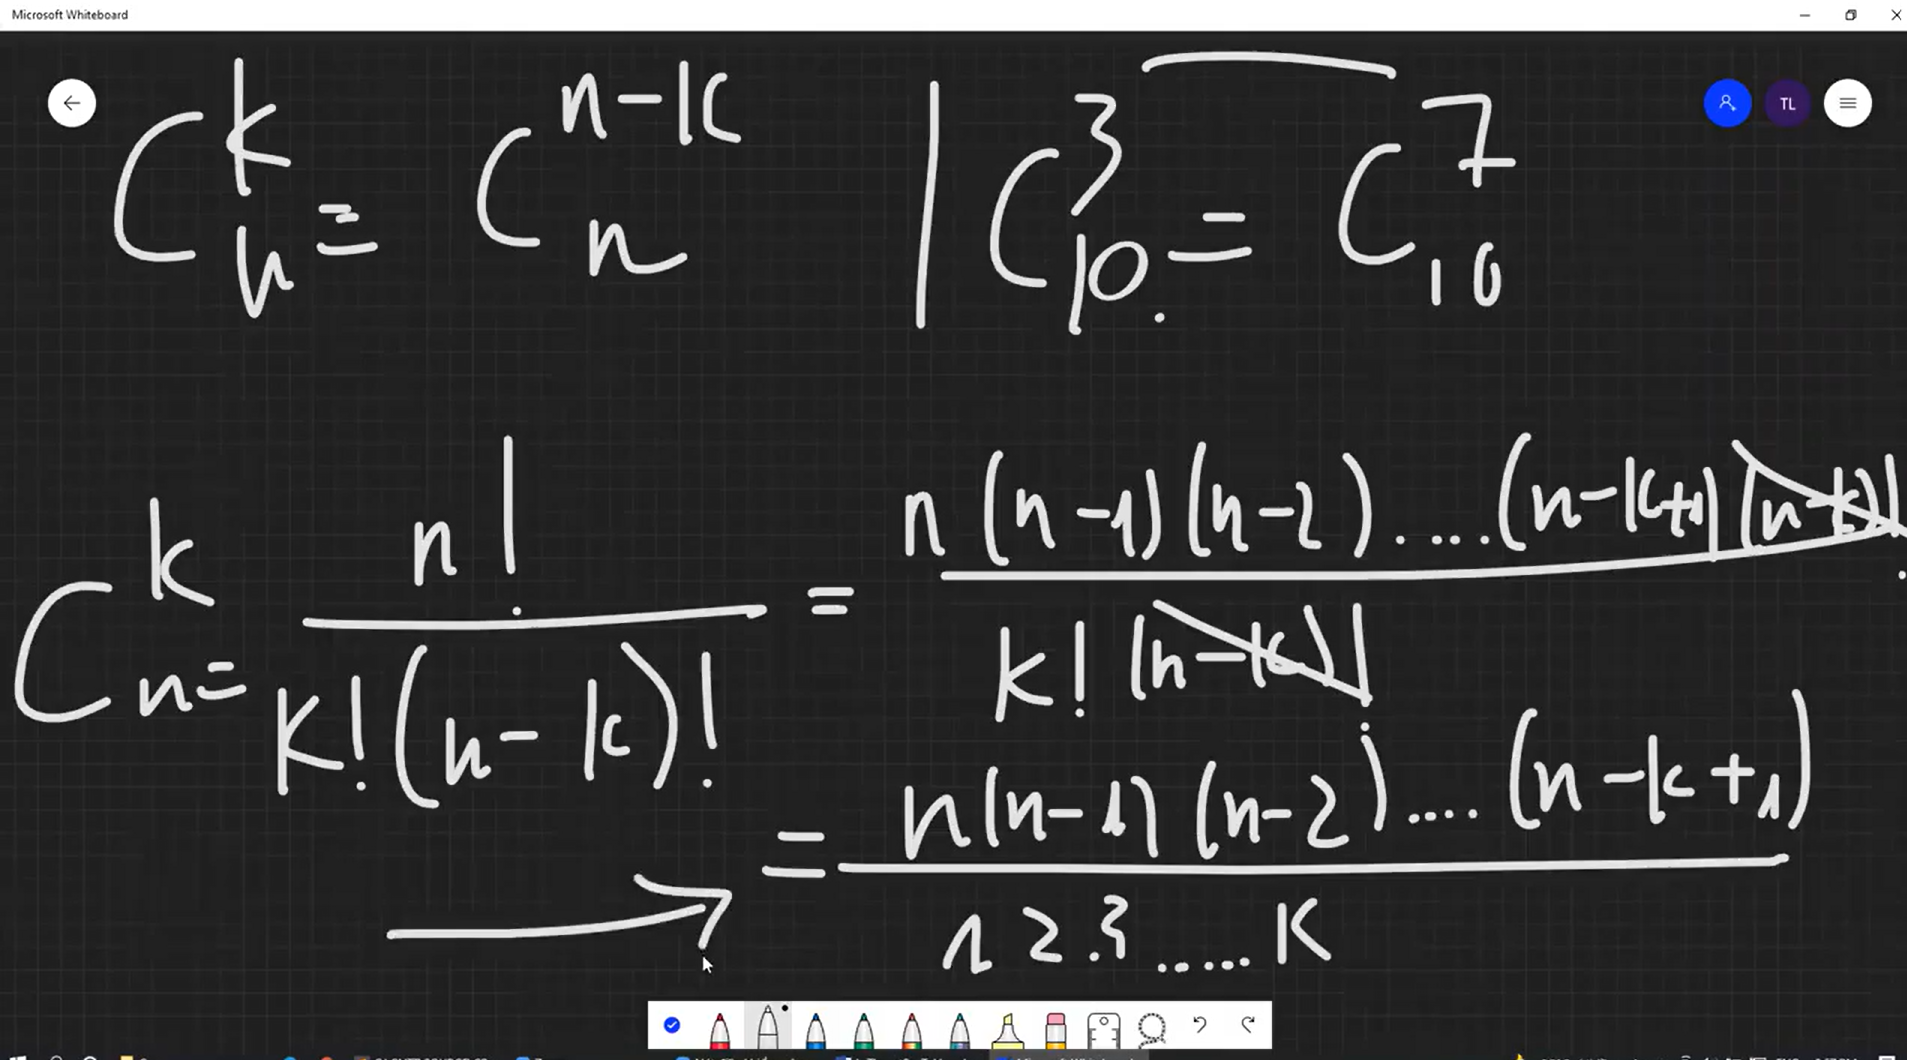 Microsoft Whiteboard
TL
C_n^k = C_n^{n-k} | C_{10}^3 = C_{10}^7
C_n^k = n! / k!(n-k)! = n(n-1)(n-2).....(n-k+1)(n-k)! / k!(n-k)!
= n(n-1)(n-2)....(n-k+1) / 1 2 .3 ...... k